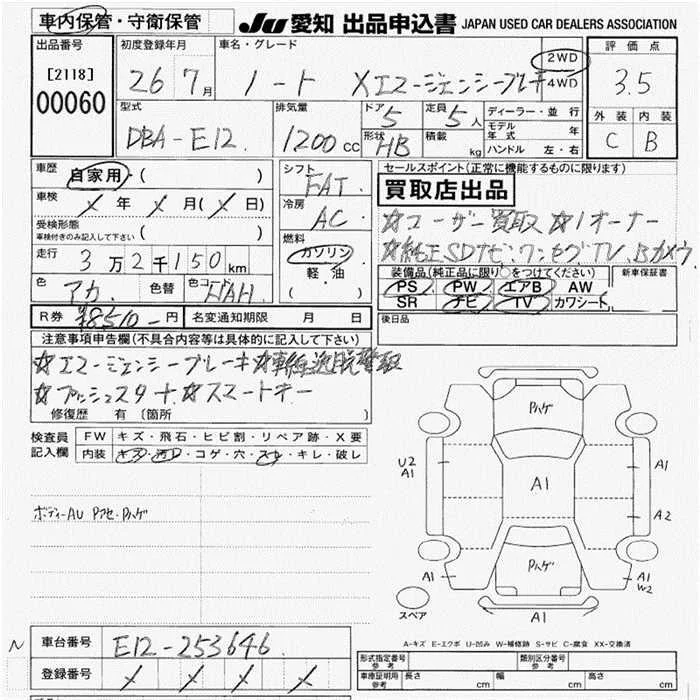 車内保管・守衛保管
JU 愛知 出品申込書 JAPAN USED CAR DEALERS ASSOCIATION
出品番号 初度登録年月 車名・グレード 評価点
[2118]
00060
26 7月 ノート Xエマージェンシーブレーキ 2WD 4WD 3.5
型式 排気量 ドア 5 定員 5人 ディーラー・並行 外装 内装
DBA-E12 1200cc 形状 HB 積載 kg モデル年式 年 C B
ハンドル 左・右
車歴 自家用・( ) シフト FAT セールスポイント(正常に機能するものに限ります)
買取店出品
車検 メ 年 メ 月(メ 日) 冷房 AC
☆ユーザー買取 ☆1オーナー
受検形態
車検付きのみ記入して下さい( ) 燃料
☆純正SDナビ.ワンセグTV.Bカメラ
走行 3万2千150km ガソリン 軽油 ( )
装備品(純正品に限り○をつけてください) 新車保証書
色 アカ 色替 色コード NAH
PS PW エアB AW
SR ナビ TV カワシート
R券 ¥8510-円 名変通知期限 月 日 後日品
注意事項申告欄(不具合内容等は具体的に記入して下さい)
☆エマージェンシーブレーキ☆車線逸脱警報
☆プッシュスタート☆スマートキー
修復歴 有 〔箇所 〕
検査員記入欄 FW キズ・飛石・ヒビ割・リペア跡・X要
内装 キズ・汚レ・コゲ・穴・スレ・キレ・破レ
ボディーAU Pアセ・Pハゲ
Pハゲ
U2
A1
A1
A1
A2
Pハゲ
A1
A1
W2
スペア
A1
A-キズ E-エクボ U-凹み W-補修跡 S-サビ C-腐食 XX-交換済
N 車台番号 E12-253646
登録番号 メ メ メ メ
形式指定番号 参考 類別区分番号 参考
車庫証明用 参考 長さ cm 幅 cm 高さ cm